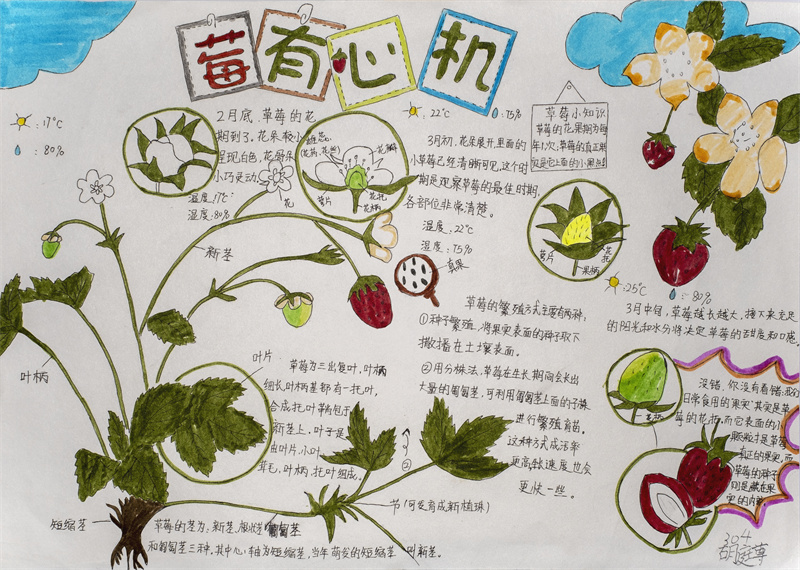 莓有心机
:17℃
:80%
2月底,草莓的花
期到了。花朵较小
呈现白色,
小巧灵动。
温度:17℃
湿度:80%
花瓣
萼片
花托
花柄
花
:22℃
:75%
3月初,花朵展开里面的
小草莓已经清晰可见,这个时
期是观察草莓的最佳时期,
各部位非常清楚。
温度:22℃
湿度:75%
草莓小知识
草莓的花果期为每
年1次,草莓的真正果
实是它上面的小黑点
萼片
花托
果柄
:25℃
:80%
3月中旬,草莓越长越大,接下来充足
的阳光和水分将决定草莓的甜度和口感。
新茎
真果
叶柄
草莓的繁殖方式主要有两种,
①种子繁殖,将果实表面的种子取下
撒播在土壤表面。
②用分株法,草莓在生长期间会长出
大量的匍匐茎,可利用匍匐茎上面的子株
进行繁殖育苗,
这种方式成活率
更高,生长速度也会
更快一些。
叶片
草莓为三出复叶,叶柄
细长叶柄基部有一托叶,
合成托叶鞘包于
新茎上,叶子是
由叶片,小叶
茸毛,叶柄,托叶组成。
②
没错,你没有看错,我们
日常食用的“果实”其实是草
莓的花托,而它表面的小
颗粒才是草莓
真正的果实,而
草莓的种子
则是藏在果
实的内部
节(可发育成新植株)
短缩茎
草莓的茎为:新茎,根状茎 匍匐茎
和匍匐茎三种。其中心轴为短缩茎,当年萌发的短缩茎 叫新茎。
304
胡庭萼